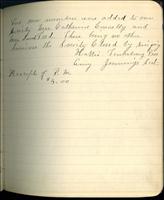 Two new members were added to our
Society Geo. Catherine Connelly and
Mrs. Peel. There being no other
business the Society Closed by singing
Hattie Pres
Amy Jennings Sect.
Receipts of P. M.
$5.00